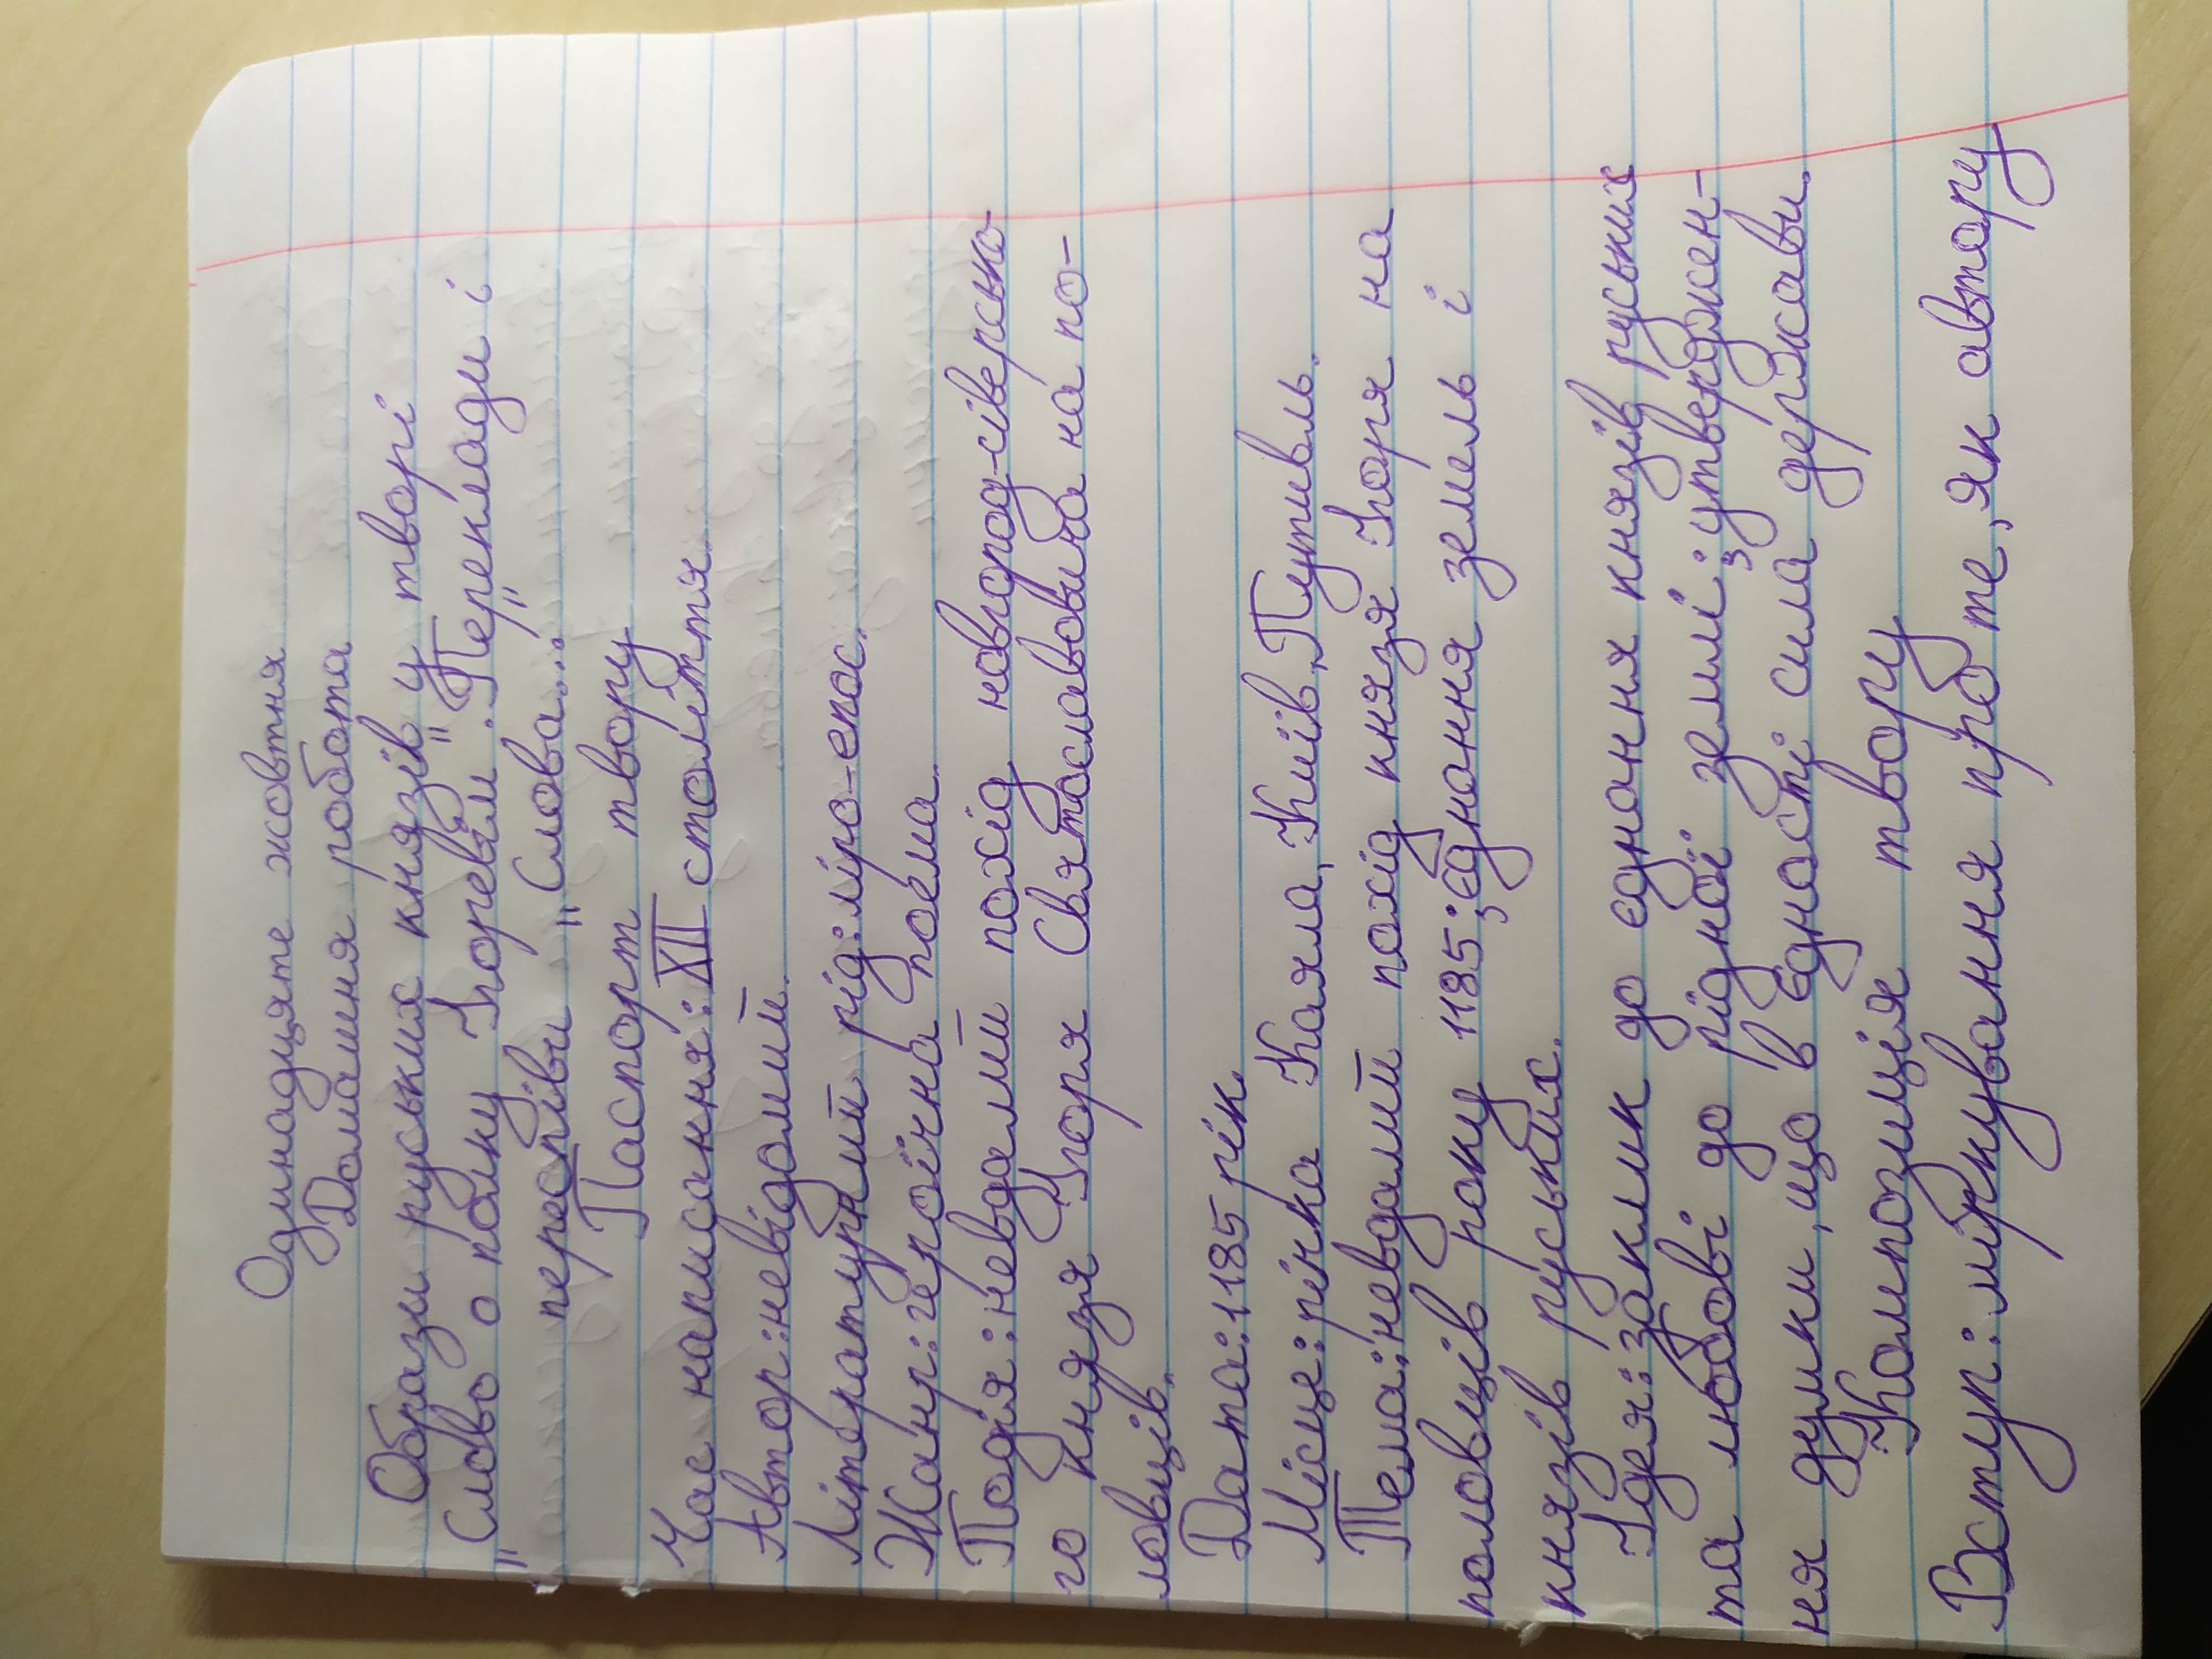 Одинадцяте жовтня
Домашня робота
Образи руських князів у творі
"Слово о полку Ігоревім". Переклади і
переспіви "Слова...
Паспорт твору
Час написання: XII століття
Автор: невідомий.
Літературний рід: ліро-епос.
Жанр: героїчна поема
Подія: невдалий похід новгород-сіверсько-
го князя Ігоря Святославовича на по-
ловців.
Дата: 1185 рік.
Місце: річка Каяла, Київ, Путивль.
Тема: невдалий похід князя Ігоря на
половців року 1185; єднання земель і
князів руських.
Ідея: заклик до єднання князів руських
та любові до рідної землі; утверджен-
ня думки, що в єдності сила держави.
Композиція твору
Вступ: міркування про те, як автору